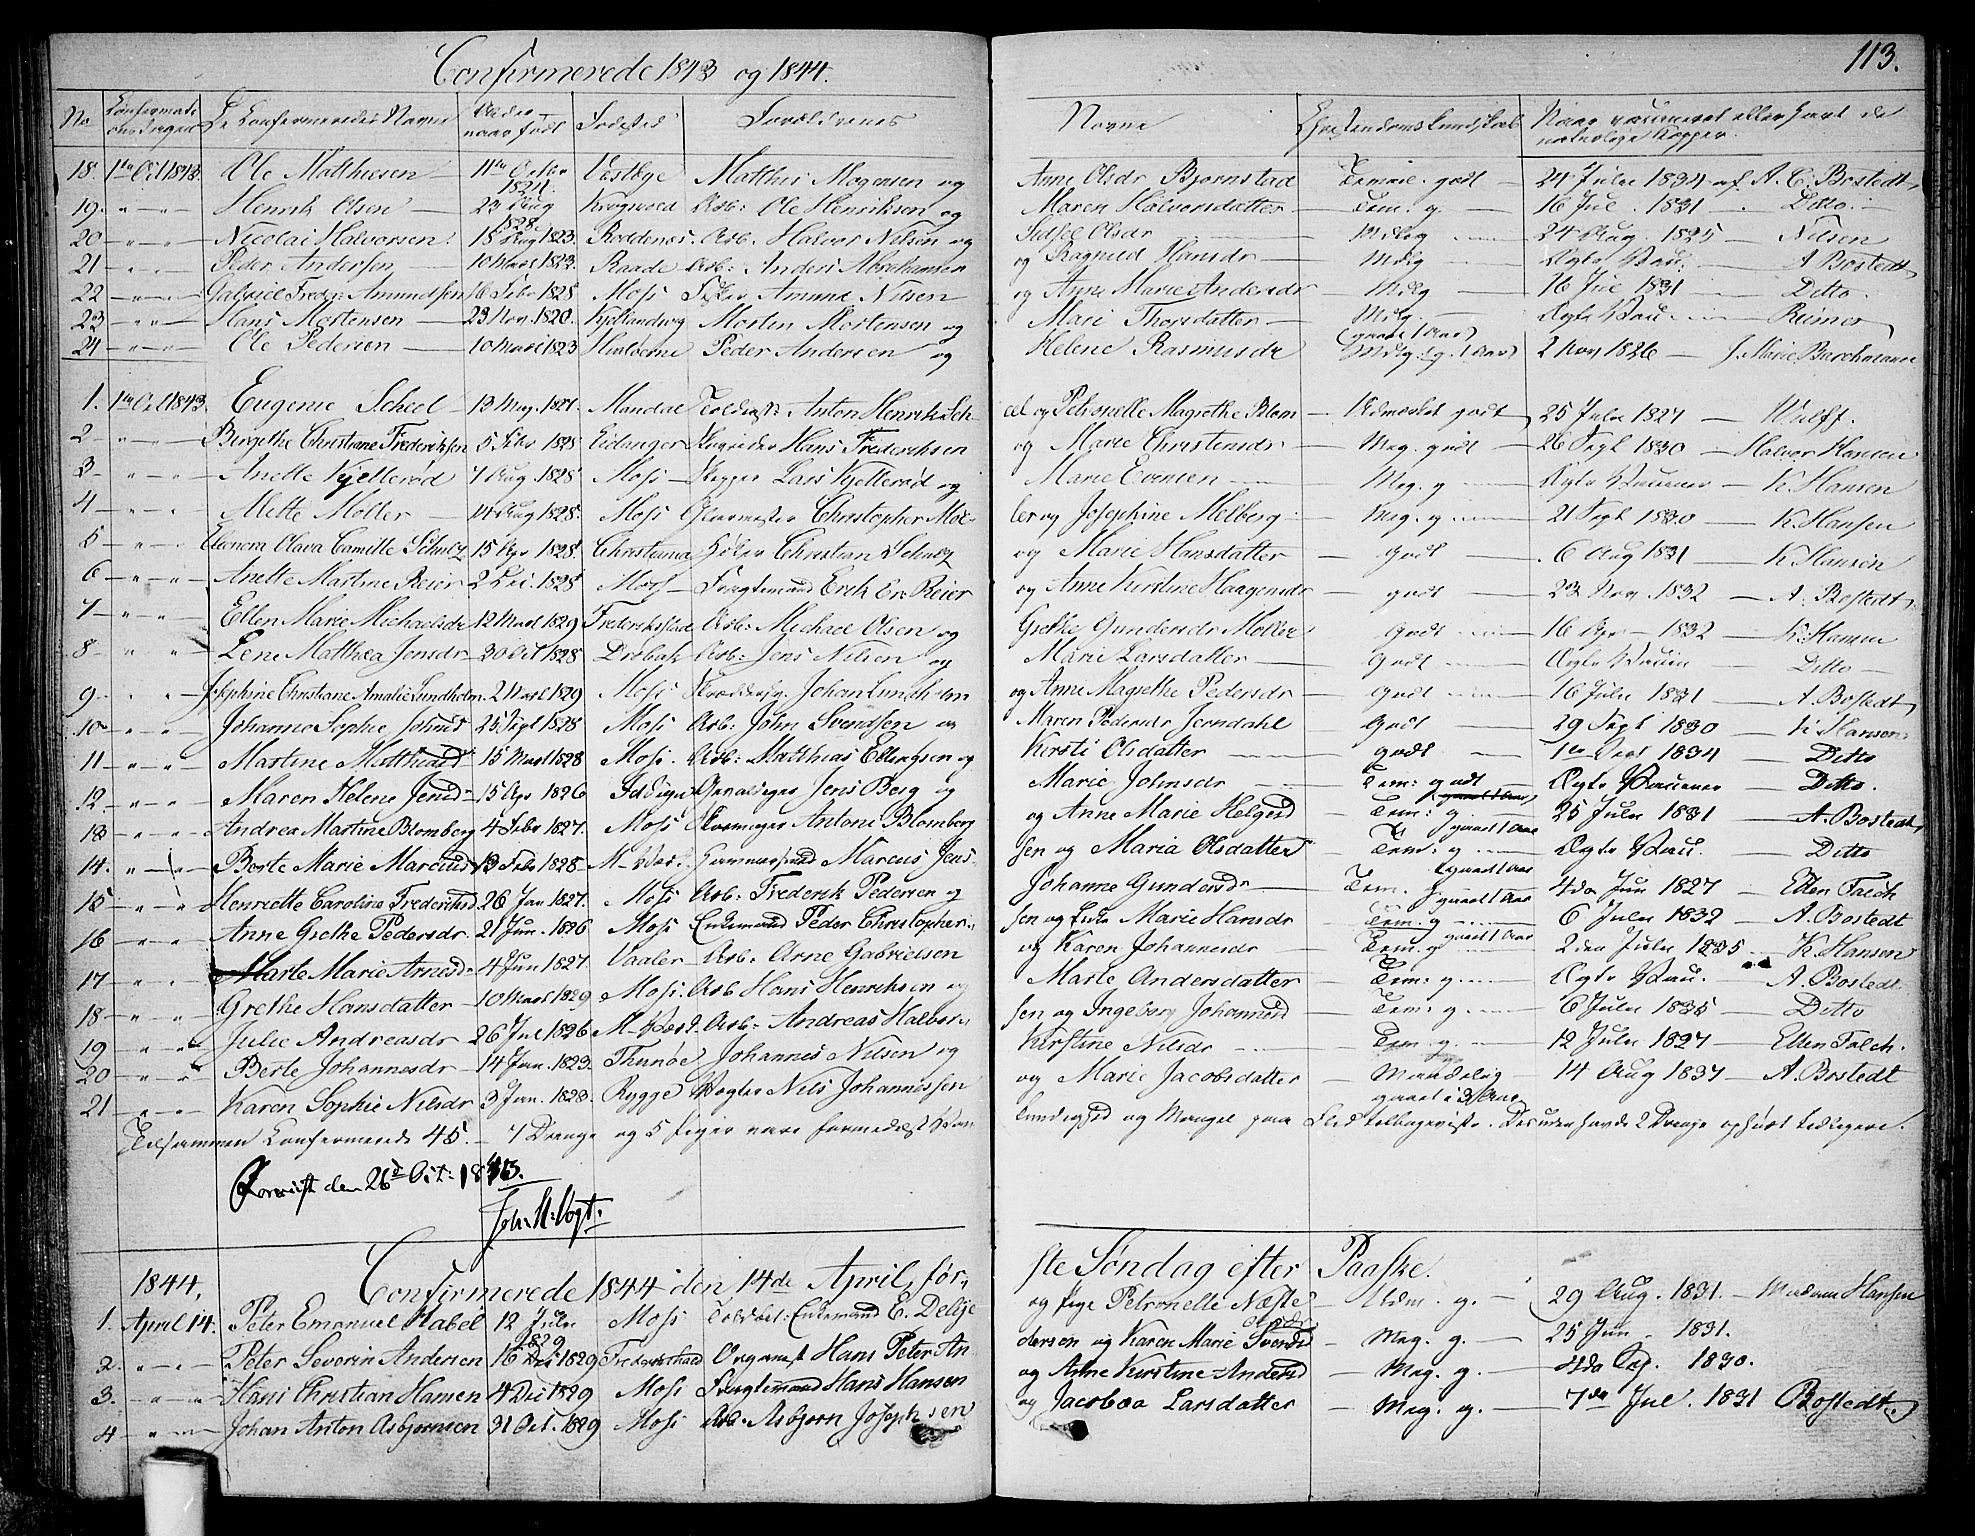 Confirmerede 1843 og 1844.
113.
No Confirmations Dagen De Confirmeredes Navne Alder naar født Fødested Forældrenes
Navne Christendomskundskab Naar vaccineret eller havt de naturlige Kopper.
18. 1ste Oct 1843. Ole Mathiesen 11te Octbr 1824. Vestbye Matthis Mogensen og Anne Olsdr Bjørnstad Temmel. godt 24 Julii 1834 af A. C. Bostedt
19. " " Henrik Olsen 23 Aug 1828. Krogsvold Arb: Ole Henriksen og Maren Halvorsdatter Tem: g. 16 Jul. 1831 Ditto.
20 " " Nicolai Halvorsen 18 Aug 1823. Rødenes. Arb. Halvor Nilsen og Sidsel Olsdr Mdlg 24 Aug. 1825 Nilsen
21 " " Peder Andersen 10 Mars 1823. Raade Arb: Anders Abrahamsen og Ragnild Hansdr Mdlg Ægte Vac: A Bostedt
22 " " Gabriel Fredr: Amundsen 16 Febr 1828 Moss Fisker Amund Nilsen og Anne Marie Andersdr Mdlg 16 Jul 1831 Ditto.
23 " " Hans Mortensen 23 Nov. 1820. Morten Mortensen og Mari Thorsdatter Mdlg. (gaaet 1 Aar) Ægte Vac Reimer
24 " " Ole Pedersen 10 Mars 1823 Hvaløerne Peder Andersen og Helene Rasmusdr Mdlg. g. 1 Aar) 2 Nov 1826 J. Marie Barchmann
1. 1ste Oct 1843. Eugenie Scheel 13 May. 1827. Mandal Anton Henrik Scheel og Petronelle Magrethe Blom Udmærket godt 25 Julii 1827 Wulff.
2 " " Bergithe Christiane Frederiksen 5 Febr 1828 Eidanger Hans Frederiksen og Marie Christensdr Meg. godt 26 Sept 1830 Halvor Hansen
3 " " Anette Kjellerød 7 Aug 1828 Moss Lars Kjellerød og Marie Evensen Meg. g Ægte Vaccine K. Hansen
4 " " Mette Møller 14 Aug 1828. Moss Glasmester Christopher Møller og Josephine Melberg Meg. g 21 Sept 1830 K. Hansen
5 " " Eleonora Olava Camille Schultz 15 Apr 1828. Christiania Christian Schultz og Marie Hansdatter godt 6 Aug 1831 K Hansen
6 " " Anette Martine Reier 2 Dec. 1828 Moss Fragtemand Erik Er. Reier og Anne Kirstine Haagensdr godt 23 Nov. 1832 A. Bostedt
7 " " Ellen Marie Michaelsdr 12 Mars 1829 Frederikstad Arb: Michael Olsen og Grethe Gundersdr Møller godt 16 Apr 1832 K. Hansen
8 " " Lene Matthea Jensdr 30 Oct 1828 Drøbak Arb: Jens Nilsen og Marie Larsdatter godt Ægte Vaccin Ditto
9 " " Josephine Christiane Amalie Lundholm 2 Mars 1829 Moss Skræddersv. Johan Lundholm og Anne Magrethe Pedersdr godt 16 Julii 1831 A. Bostedt
10 " " Johanne Sophie Johnsd 25 Sept 1828 Moss Arb: John Svendsen og Maren Pedersdr Jerndahl godt 29 Sept 1830 K Hansen
11 " " Martine Matthiasd 15 Mars 1828 Moss. Arb: Matthias Ellingsen og Kirsti Olsdatter godt 1ste Sept 1834 Ditto
12 " " Maren Helene Jensd 15 Apr 1826 Jens Berg og Marie Johnsdr Tem: godt Ægte Vaccine Ditto.
13 " " Andrea Martine Blomberg 4 Febr 1827. Moss Antoni Blomberg og Anne Marie Helgesd Tem: g. 25 Julii 1831 A. Bostedt
14. " " Berte Marie Marcusd 13 Febr 1828 Marcus Jensen og Maria Olsdatter Tem: g gaaet 1 Aar Ægte Vac. Ditto
15 " " Henriette Caroline Frederiksd 26 Jan 1827. Moss Arb: Frederik Pedersen og Johanne Gundersdr Tem. g gaaet 1 Aar 4de Jun 1827 Ellen Falch
16 " " Anne Grethe Pedersdr. 21 Jun. 1826 Moss Enkemand Peder Christophersen og Marie Hansdr Tem: g gaaet 1 Aar 6 Julii 1832 A. Bostedt
17 " " Marte Marie Arnesdr 4 Jun 1827. Vaaler Arb. Arne Gabrielsen og Karen Johannesdr Tem: g gaaet 1 Aar 2den Julii 1835 K. Hansen
18 " " Grethe Hansdatter 10 Mars 1829 Moss. Arb Hans Henriksen og Marte Andersdatter Tem: g. Ægte Vac. A. Bostedt
19 " " Julie Andreasdr 26 Jul 1826 Arb: Andreas Halvorsen og Ingeborg Johannesd Tem: g. 6 Julii 1835 Ditto
20 " " Berte Johannesdr 14 Jan. 1823. Thunøe Johannes Nilsen og Kirstine Nilsdr Tem. g. 12 Julii 1827 Ellen Falch.
21 " " Karen Sophie Nilsdr 3 Jan. 1828. Rygge Nils Johannessen og Marie Jacobsdatter Maadelig gaaet i 3 Aar 14 Aug 1837 A. Bostedt
Tilsammen Confirmerede 45. 7 Drenge og 5 Piger vare formedelst Vankundighed og Mangel paa Flid tilbageviste. Desuden havde 2 Drenge ophørt tidligere.
den 26d Oct: 1843.
Joh. H: Vogt.
Confirmerede 1844 den 14de April, første Søndag efter Paaske.
1844.
1. April 14. Peter Emanuel Kabel 12 Julii 1829 Moss Enkemand E. Delije og Pige Petronelle Næste Udm. g. 29 Aug. 1831. Madam Hansen
2. " " Peter Severin Andersen 16 Dec 1829 Frederikshald Organist Hans Peter Andersen og Karen Marie Svendsd Meg. g. 25 Jun 1831.
3. " " Hans Christian Hansen 4 Dec 1829 Moss Fragtemand Hans Hansen og Anne Kirstine Andersd Meg. g. 4de Sep. 1830.
4 " " Johan Anton Asbjørnsen 31 Oct. 1829 Moss Arb: Asbjørn Josephsen og Jacobæa Larsdatter Meg. g. 7de Jul. 1831 Bostedt